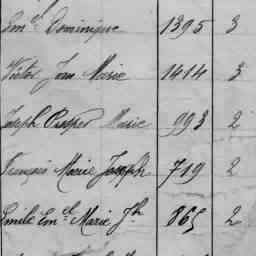 Em.el Dominique 1395 3
Victor Jean Marie 1414 3
Joseph Prosper Marie 993 2
François Marie Joseph 719 2
Emile Em.el Marie J.h 865 2